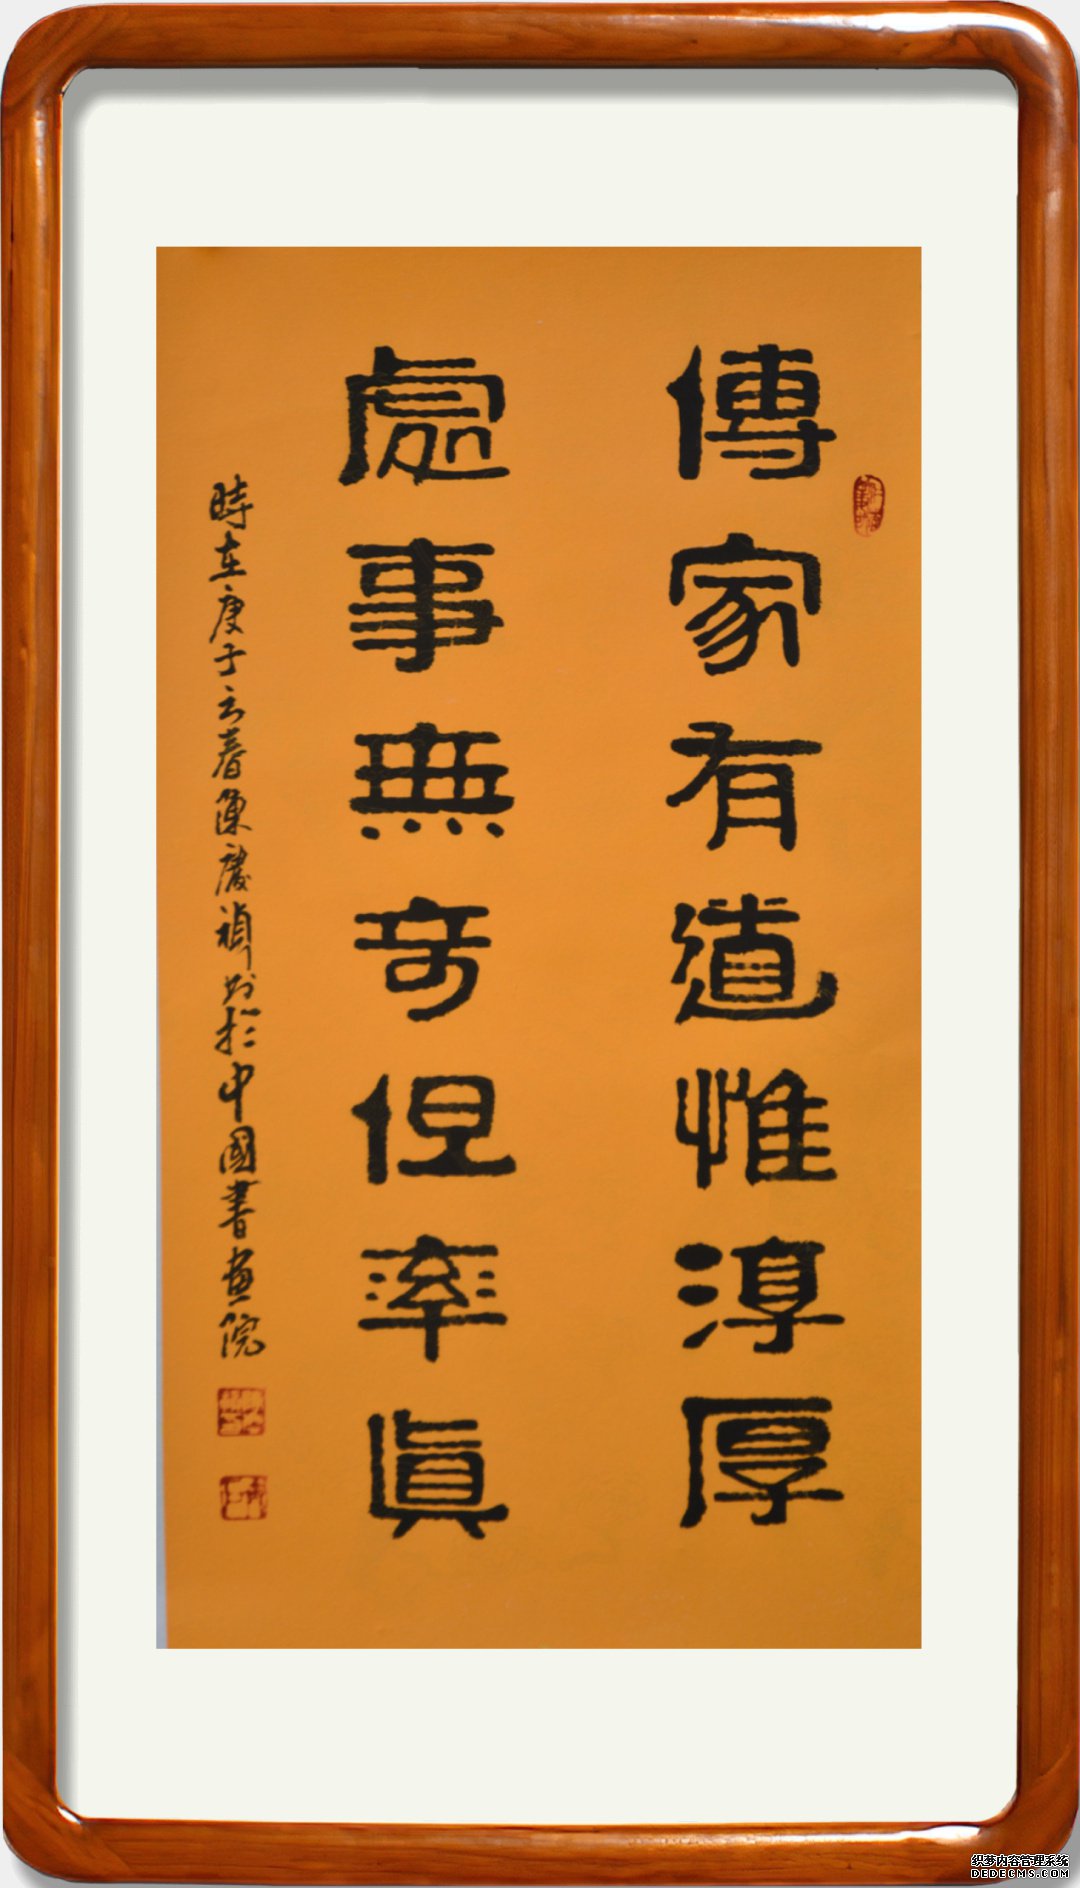 傳家有道惟淳厚
處事無奇但率眞
時在庚子之春陳慶禎书於中國書畫院
织梦内容管理系统
DEDECMS.COM